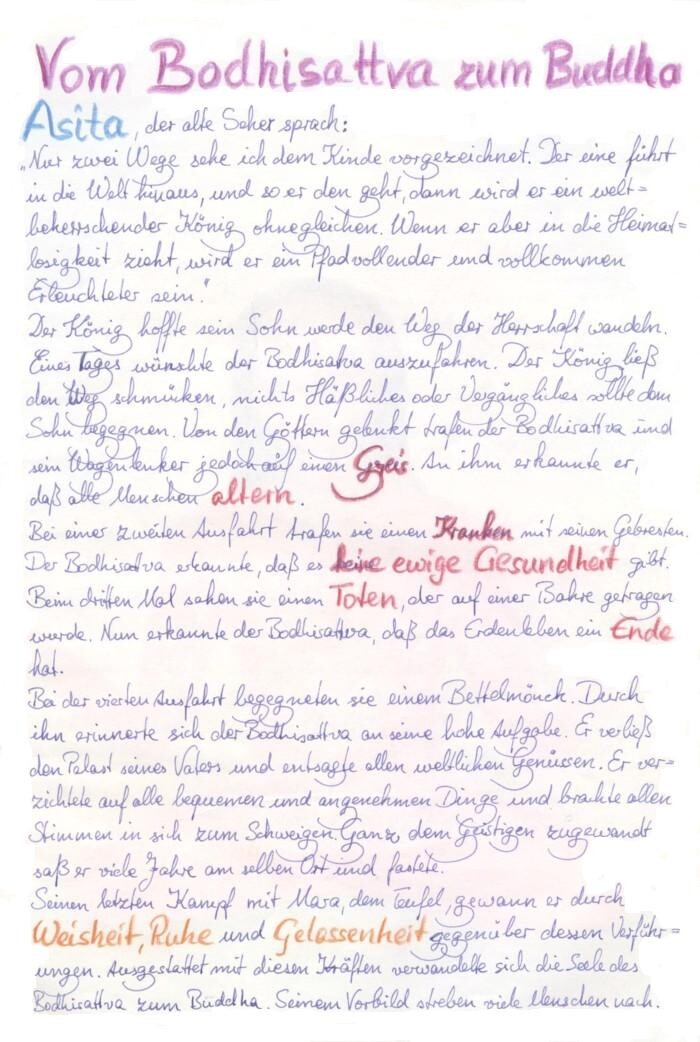 Vom Bodhisattva zum Buddha
Asita, der alte Seher sprach:
„Nur zwei Wege sehe ich dem Kinde vorgezeichnet. Der eine führt
in die Welt hinaus, und so er den geht, dann wird er ein welt=
beherrschender König ohnegleichen. Wenn er aber in die Heimat=
losigkeit zieht, wird er ein Pfadvollender und vollkommen
Erleuchteter sein."
Der König hoffte sein Sohn werde den Weg der Herrschaft wandeln.
Eines Tages wünschte der Bodhisattva auszufahren. Der König ließ
den Weg schmücken, nichts Häßliches oder Vergängliches sollte dem
Sohn begegnen. Von den Göttern gelenkt trafen der Bodhisattva und
sein Wagenlenker jedoch auf einen Greis. An ihm erkannte er,
daß alle Menschen altern.
Bei einer zweiten Ausfahrt trafen sie einen Kranken mit seinen Gebresten.
Der Bodhisattva erkannte, daß es keine ewige Gesundheit gibt.
Beim dritten Mal sahen sie einen Toten, der auf einer Bahre getragen
wurde. Nun erkannte der Bodhisattva, daß das Erdenleben ein Ende
hat.
Bei der vierten Ausfahrt begegneten sie einem Bettelmönch. Durch
ihn erinnerte sich der Bodhisattva an seine hohe Aufgabe. Er verließ
den Palast seines Vaters und entsagte allen weltlichen Genüssen. Er ver=
zichtete auf alle bequemen und angenehmen Dinge und brachte allen
Stimmen in sich zum Schweigen. Ganz dem Geistigen zugewandt
saß er viele Jahre am selben Ort und fastete.
Seinen letzten Kampf mit Mara, dem Teufel, gewann er durch
Weisheit, Ruhe und Gelassenheit gegenüber dessen Verführ=
ungen. Ausgestattet mit diesen Kräften verwandelte sich die Seele des
Bodhisattva zum Buddha. Seinem Vorbild streben viele Menschen nach.